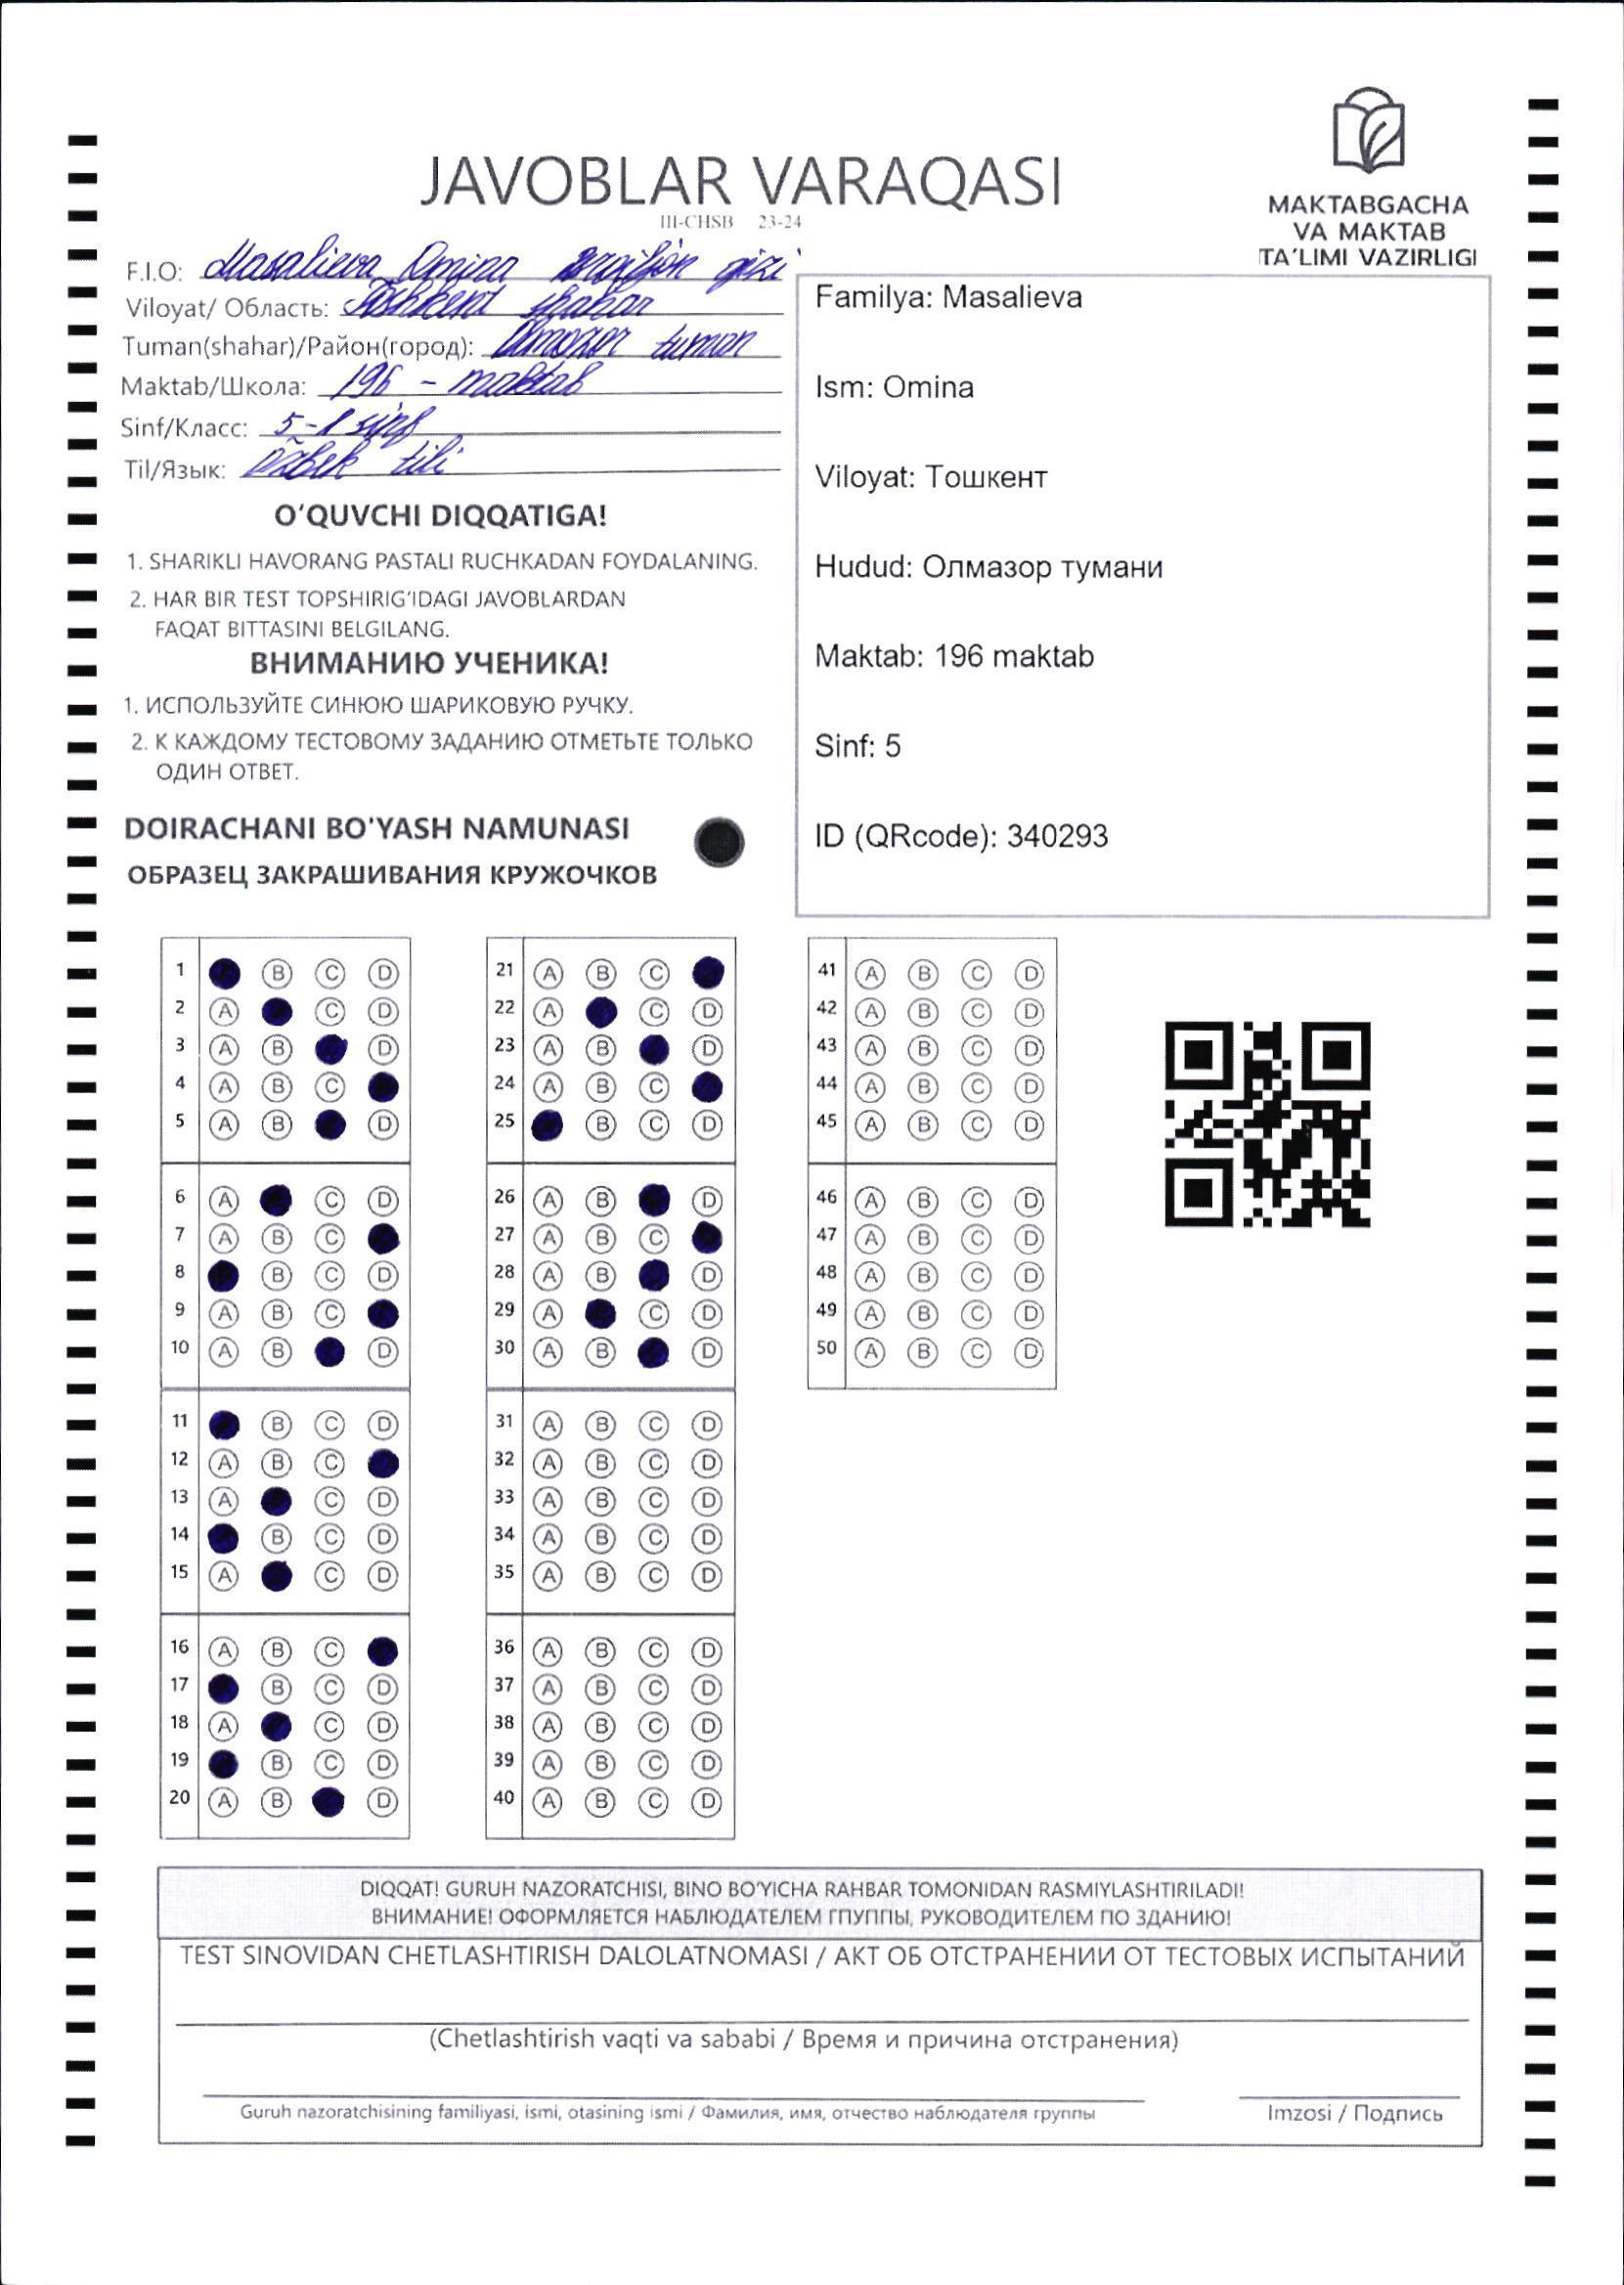 JAVOBLAR VARAQASI
III-CHSB 23-24
MAKTABGACHA
VA MAKTAB
TA'LIMI VAZIRLIGI
F.I.O: Masalieva Omina qizi
Viloyat/ Область: Toshkent shahar
Tuman(shahar)/Район(город): Olmazor tuman
Maktab/Школа: 196 - maktab
Sinf/Класс: 5-1 sinf
Til/Язык: O'zbek tili
Familya: Masalieva
Ism: Omina
Viloyat: Тошкент
Hudud: Олмазор тумани
Maktab: 196 maktab
Sinf: 5
ID (QRcode): 340293
O'QUVCHI DIQQATIGA!
1. SHARIKLI HAVORANG PASTALI RUCHKADAN FOYDALANING.
2. HAR BIR TEST TOPSHIRIG'IDAGI JAVOBLARDAN
FAQAT BITTASINI BELGILANG.
ВНИМАНИЮ УЧЕНИКА!
1. ИСПОЛЬЗУЙТЕ СИНЮЮ ШАРИКОВУЮ РУЧКУ.
2. К КАЖДОМУ ТЕСТОВОМУ ЗАДАНИЮ ОТМЕТЬТЕ ТОЛЬКО
ОДИН ОТВЕТ.
DOIRACHANI BO'YASH NAMUNASI
ОБРАЗЕЦ ЗАКРАШИВАНИЯ КРУЖОЧКОВ
1 B C D
2 A C D
3 A B D
4 A B C
5 A B D
6 A C D
7 A B C
8 B C D
9 A B C
10 A B D
11 B C D
12 A B C
13 A C D
14 B C D
15 A C D
16 A B C
17 B C D
18 A C D
19 B C D
20 A B D
21 A B C
22 A C D
23 A B D
24 A B C
25 B C D
26 A B D
27 A B C
28 A B D
29 A C D
30 A B D
31 A B C D
32 A B C D
33 A B C D
34 A B C D
35 A B C D
36 A B C D
37 A B C D
38 A B C D
39 A B C D
40 A B C D
41 A B C D
42 A B C D
43 A B C D
44 A B C D
45 A B C D
46 A B C D
47 A B C D
48 A B C D
49 A B C D
50 A B C D
DIQQAT! GURUH NAZORATCHISI, BINO BO'YICHA RAHBAR TOMONIDAN RASMIYLASHTIRILADI!
ВНИМАНИЕ! ОФОРМЛЯЕТСЯ НАБЛЮДАТЕЛЕМ ГПУППЫ, РУКОВОДИТЕЛЕМ ПО ЗДАНИЮ!
TEST SINOVIDAN CHETLASHTIRISH DALOLATNOMASI / АКТ ОБ ОТСТРАНЕНИИ ОТ ТЕСТОВЫХ ИСПЫТАНИЙ
(Chetlashtirish vaqti va sababi / Время и причина отстранения)
Guruh nazoratchisining familiyasi, ismi, otasining ismi / Фамилия, имя, отчество наблюдателя группы
Imzosi / Подпись